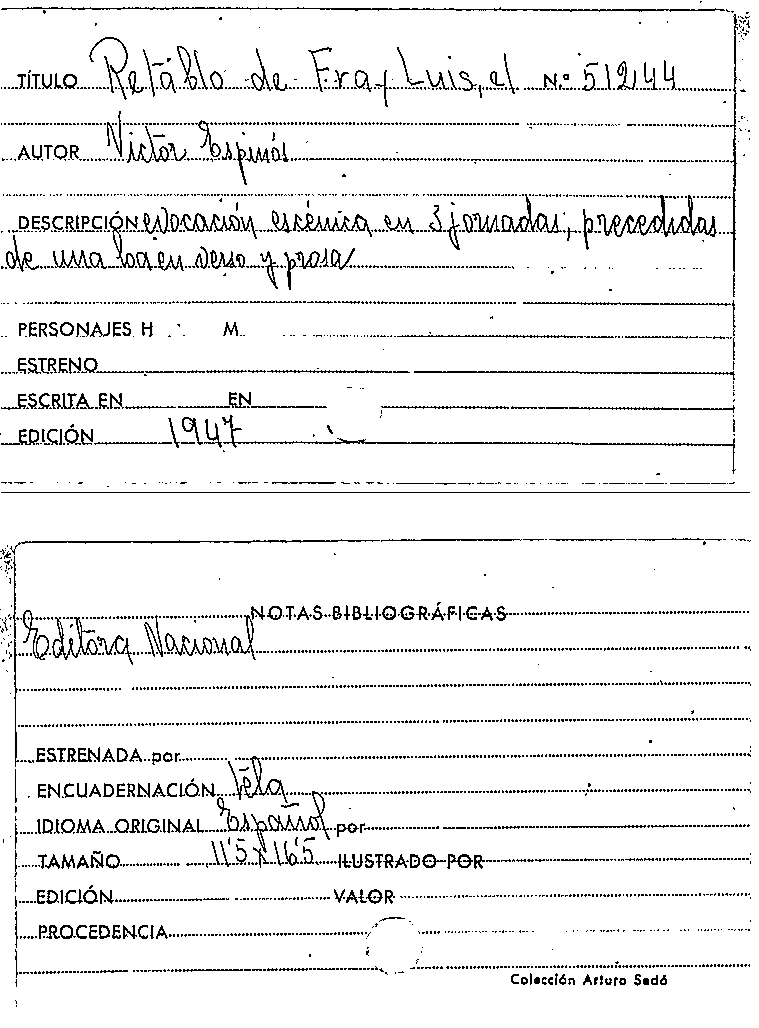 TÍTULO Retáblo de Fray Luis, el N.º 51244
AUTOR Victor Espinós
DESCRIPCIÓN evocación escénica en 3 jornadas, precedidas
de una loa en verso y prosa
PERSONAJES H M.
ESTRENO
ESCRITA EN EN
EDICIÓN 1947
NOTAS BIBLIOGRÁFICAS
Editora Nacional
ESTRENADA por
ENCUADERNACIÓN Tela
IDIOMA ORIGINAL Español por
TAMAÑO 11'5 x 16'5 ILUSTRADO POR
EDICIÓN VALOR
PROCEDENCIA
Colección Arturo Sedó